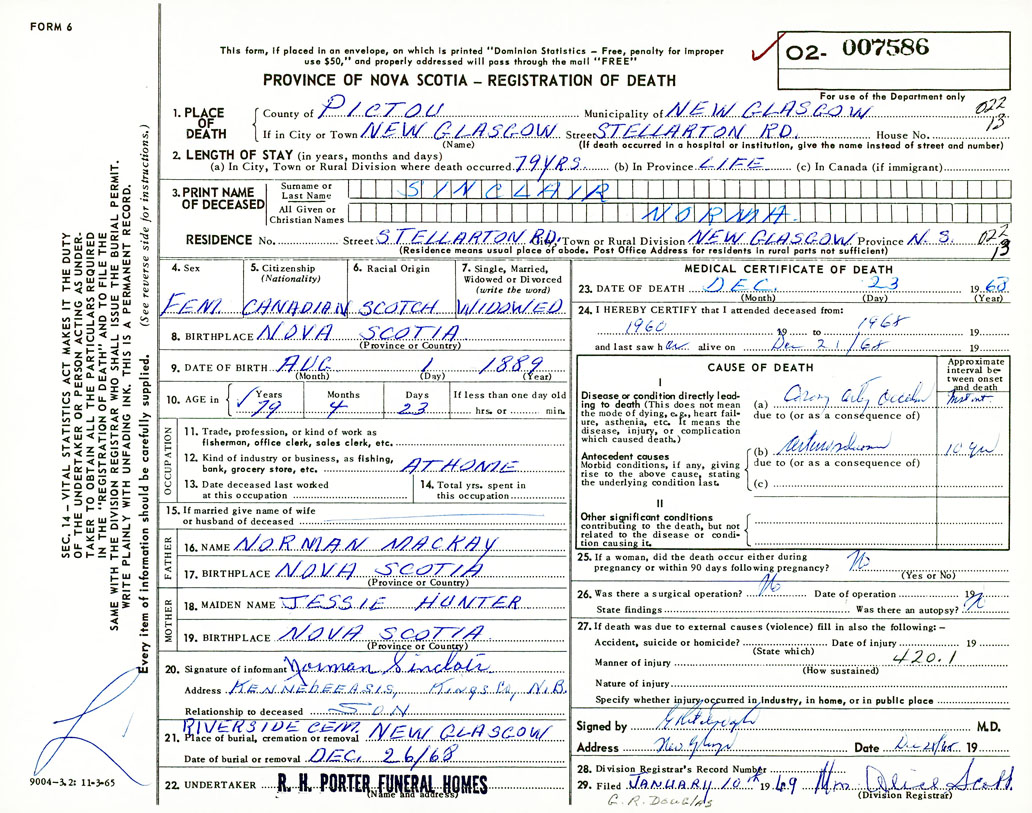 FORM 6
This form, if placed in an envelope, on which is printed "Dominion Statistics – Free, penalty for improper
use $50," and properly addressed will pass through the mail "FREE"
O2- 007586
PROVINCE OF NOVA SCOTIA – REGISTRATION OF DEATH
For use of the Department only
1. PLACE OF DEATH
County of PICTOU Municipality of NEW GLASGOW 022
If in City or Town NEW GLASGOW Street STELLARTON RD. House No. 13
(Name) (If death occurred in a hospital or institution, give the name instead of street and number)
2. LENGTH OF STAY (in years, months and days)
(a) In City, Town or Rural Division where death occurred 79 YRS. (b) In Province LIFE (c) In Canada (if immigrant)
3. PRINT NAME OF DECEASED
Surname or Last Name SINCLAIR
All Given or Christian Names NORMA
RESIDENCE No. Street STELLARTON RD. City, Town or Rural Division NEW GLASGOW Province N. S. 022
(Residence means usual place of abode. Post Office Address for residents in rural parts not sufficient) 13
4. Sex
FEM.
5. Citizenship (Nationality)
CANADIAN
6. Racial Origin
SCOTCH
7. Single, Married, Widowed or Divorced (write the word)
WIDOWED
8. BIRTHPLACE NOVA SCOTIA
(Province or Country)
9. DATE OF BIRTH AUG 1 1889
(Month) (Day) (Year)
10. AGE in Years Months Days If less than one day old
79 4 23 hrs. or min.
OCCUPATION
11. Trade, profession, or kind of work as
fisherman, office clerk, sales clerk, etc.
12. Kind of industry or business, as fishing,
bank, grocery store, etc. AT HOME
13. Date deceased last worked
at this occupation
14. Total yrs. spent in
this occupation
15. If married give name of wife
or husband of deceased
FATHER
16. NAME NORMAN MACKAY
17. BIRTHPLACE NOVA SCOTIA
(Province or Country)
MOTHER
18. MAIDEN NAME JESSIE HUNTER
19. BIRTHPLACE NOVA SCOTIA
(Province or Country)
20. Signature of informant Norman Sinclair
Address KENNEBECASIS, KINGS CO, N.B.
Relationship to deceased SON
RIVERSIDE CEM. NEW GLASGOW
21. Place of burial, cremation or removal
Date of burial or removal DEC. 26/68
22. UNDERTAKER R. H. PORTER FUNERAL HOMES
(Name and address)
MEDICAL CERTIFICATE OF DEATH
23. DATE OF DEATH DEC. 23 1968
(Month) (Day) (Year)
24. I HEREBY CERTIFY that I attended deceased from:
1960 19 to 1968 19
and last saw her alive on Dec 21/68 19
CAUSE OF DEATH
Approximate interval between onset and death
I
Disease or condition directly leading to death (This does not mean the mode of dying, e.g., heart failure, asthenia, etc. It means the disease, injury, or complication which caused death.)
(a)
due to (or as a consequence of)
Antecedent causes
Morbid conditions, if any, giving rise to the above cause, stating the underlying condition last.
(b) 10 yrs
due to (or as a consequence of)
(c)
II
Other significant conditions
contributing to the death, but not related to the disease or condition causing it.
25. If a woman, did the death occur either during
pregnancy or within 90 days following pregnancy? No
(Yes or No)
26. Was there a surgical operation? No Date of operation 19
State findings Was there an autopsy?
27. If death was due to external causes (violence) fill in also the following: –
Accident, suicide or homicide? Date of injury 19
(State which)
Manner of injury 420.1
(How sustained)
Nature of injury
Specify whether injury occurred in industry, in home, or in public place
Signed by M.D.
Address New Glasgow Date Dec 28/68 19
28. Division Registrar's Record Number
29. Filed JANUARY 10th 1969 Mrs Alice Scott
(Division Registrar)
G. R. Douglas
SEC. 14 – VITAL STATISTICS ACT MAKES IT THE DUTY
OF THE UNDERTAKER OR PERSON ACTING AS UNDER-
TAKER TO OBTAIN ALL THE PARTICULARS REQUIRED
IN THE "REGISTRATION OF DEATH" AND TO FILE THE
SAME WITH THE DIVISION REGISTRAR WHO SHALL ISSUE THE BURIAL PERMIT.
WRITE PLAINLY WITH UNFADING INK. THIS IS A PERMANENT RECORD.
Every item of information should be carefully supplied. (See reverse side for instructions.)
9004–3.2: 11-3-65